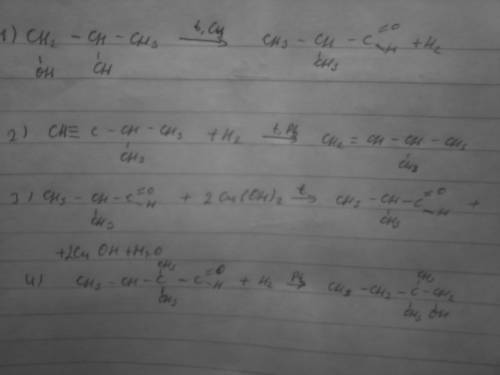 1) CH₂ – CH – CH₃ —t, Cu→ CH₃ – CH – C =O –H + H₂
OH CH CH₃
2) CH≡ C – CH – CH₃ + H₂ —t, Pt→ CH₂ = CH – CH – CH₃
CH₃ CH₃
3) CH₃ – CH – C =O –H + 2 Cu(OH)₂ —t→ CH₃ – CH – C =O –H +
CH₃ CH₃
+ 2Cu OH + H₂O
CH₃ CH₃
4) CH₃ – CH – C – C =O –H + H₂ —Pt→ CH₃ – CH₂ – C – CH₂
CH₃ CH₃ OH